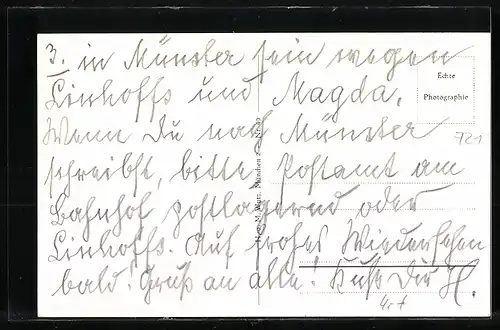 3. in Münster sein wegen
Linhoffs und Magda.
Wenn Du nach Münster
schreibst, bitte Postamt am
Bahnhof, postlagernd oder
Linhoffs. Auf frohes Wiedersehen
bald. Gruß an alle! Kuß Dir H.
Echte
Photographie
721